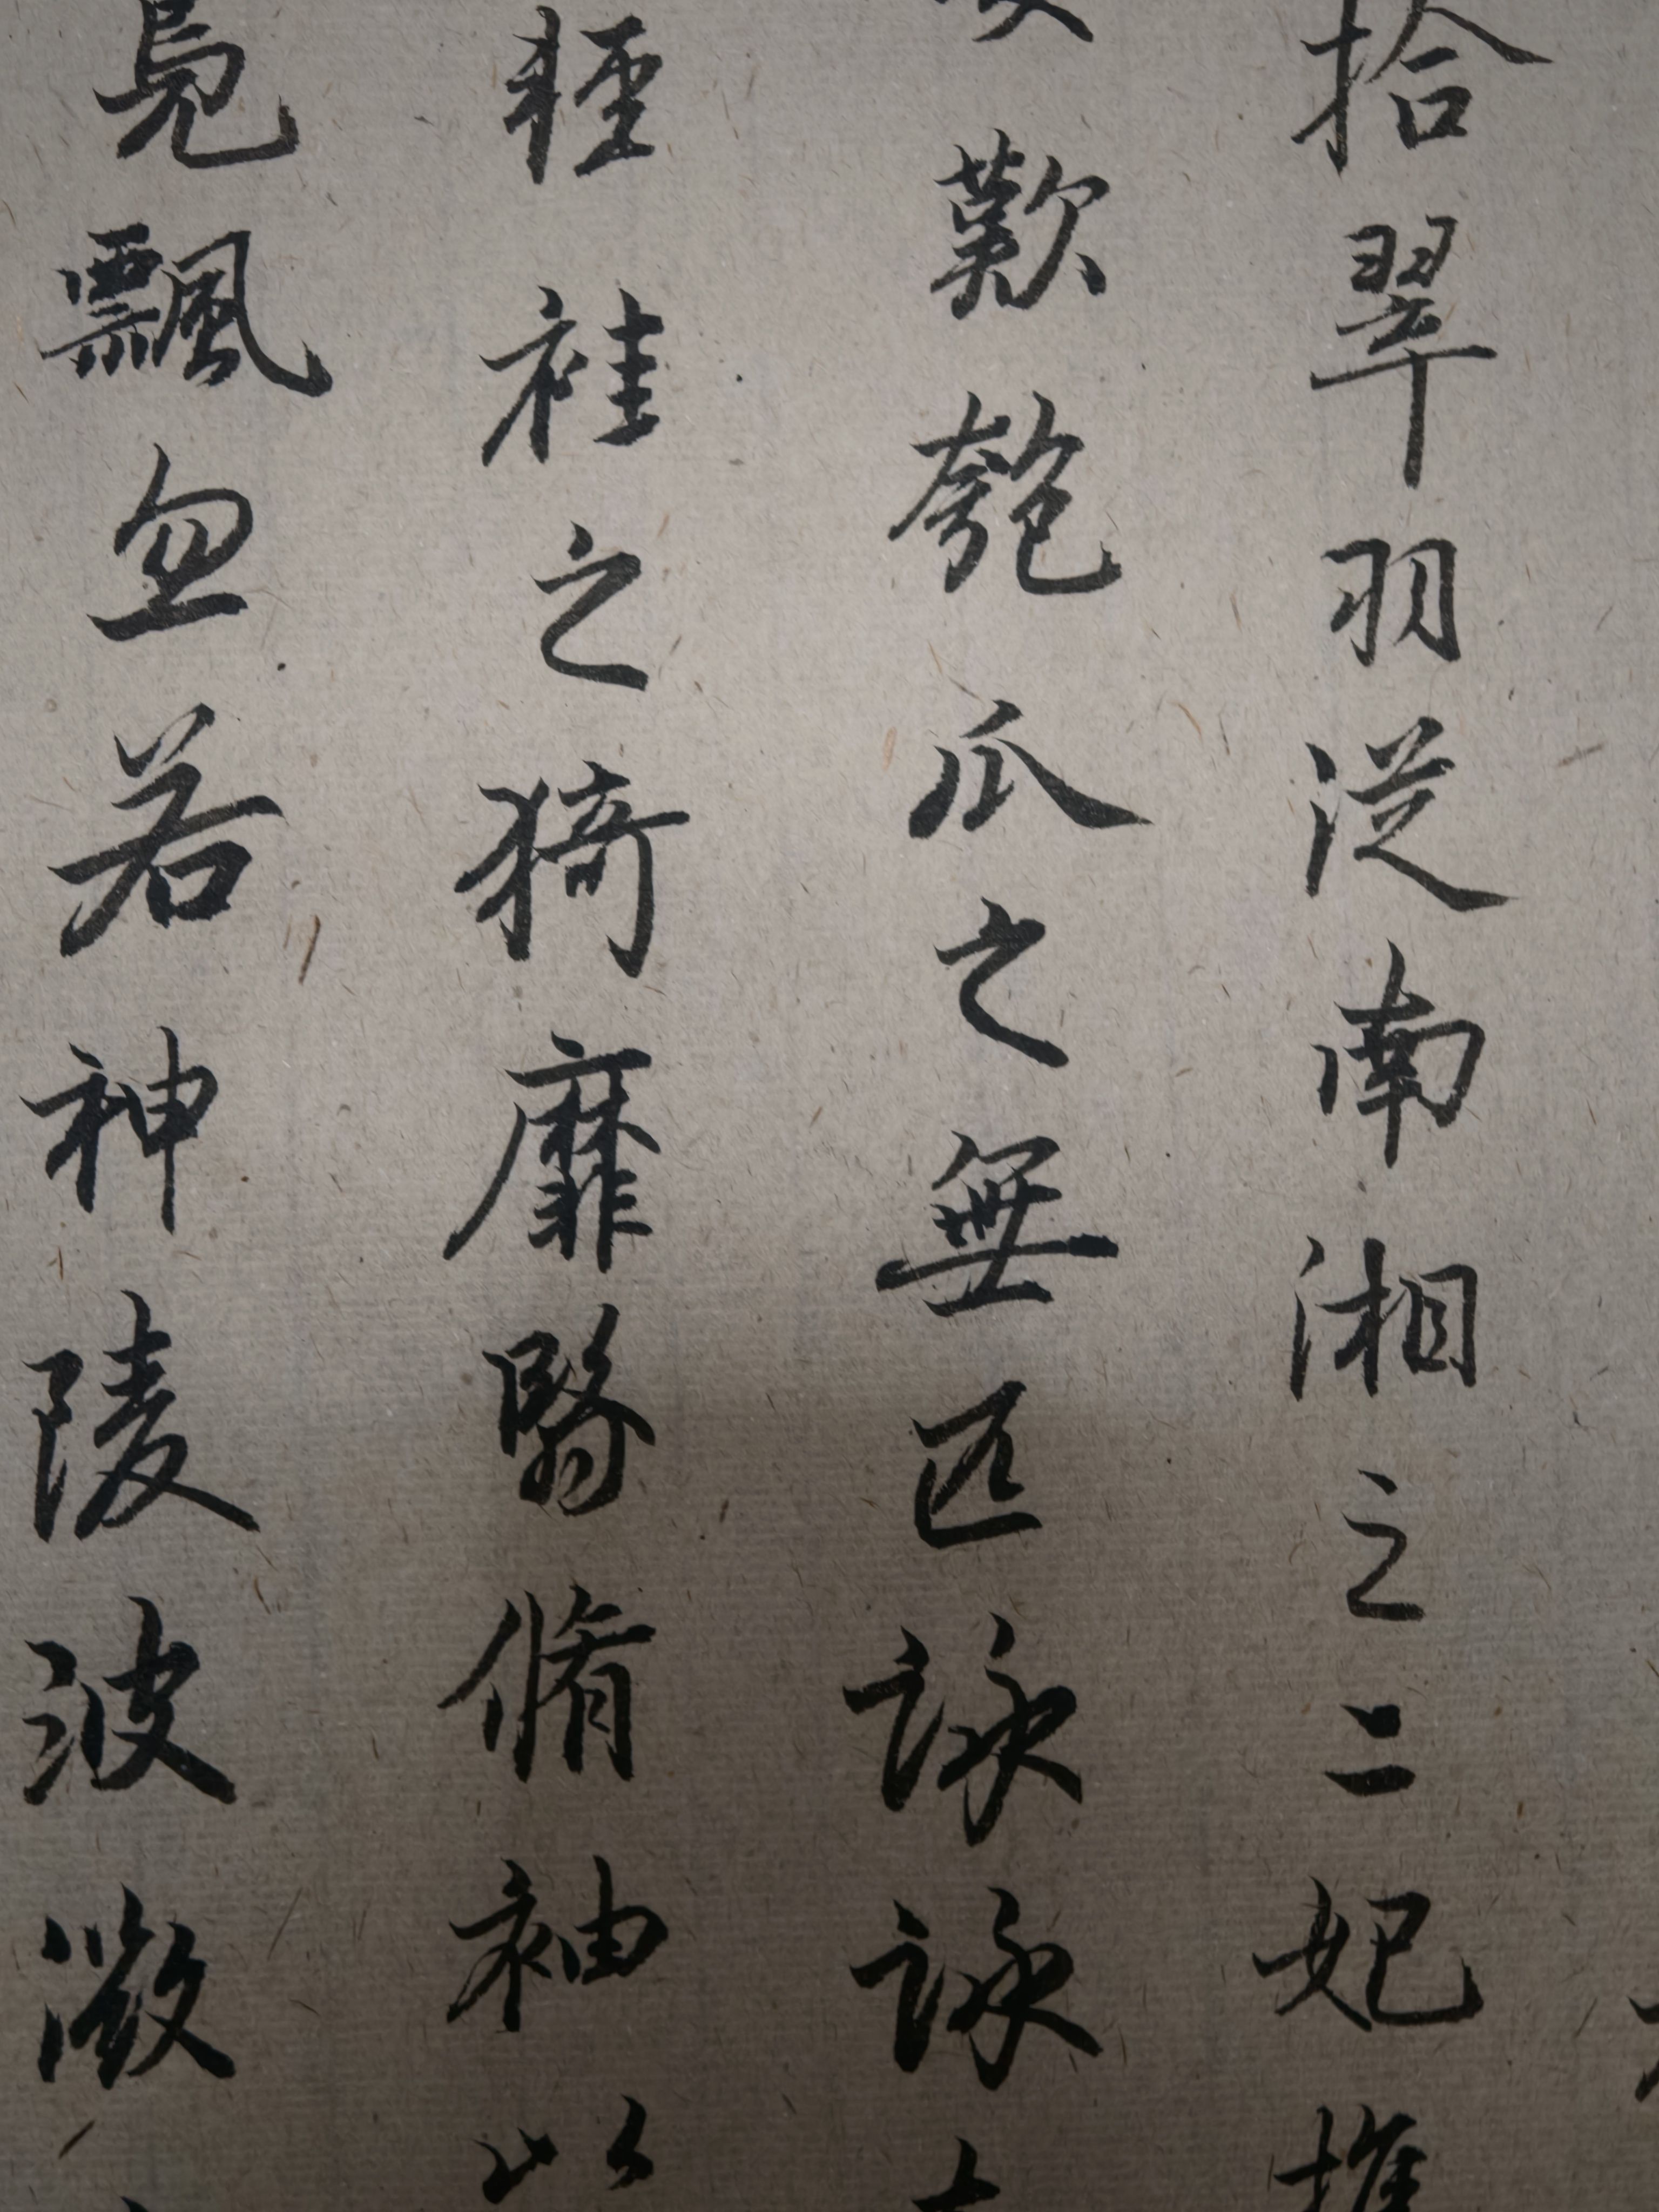 拾翠羽從南湘之二妃攜
歎匏瓜之無匹詠詠
輕袿之猗靡翳脩袖以
鳧飄忽若神陵波微